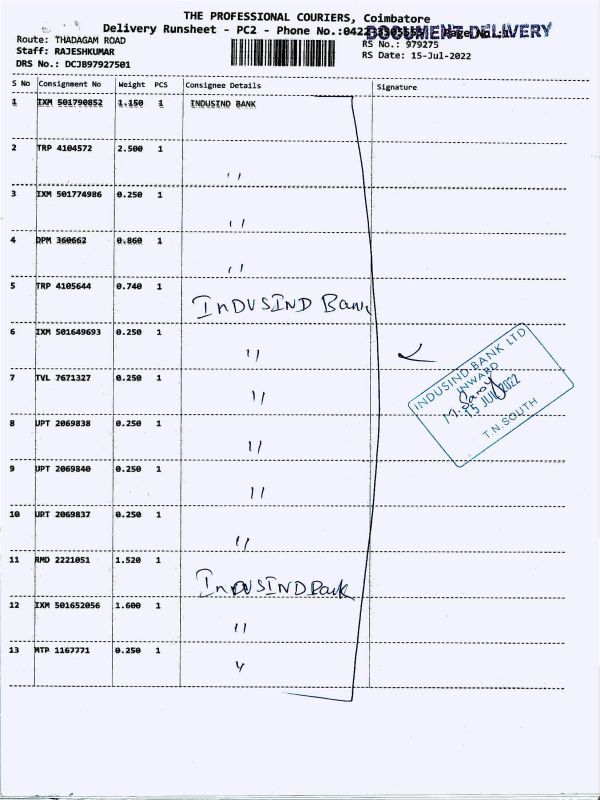 THE PROFESSIONAL COURIERS, Coimbatore
Delivery Runsheet - PC2 - Phone No.:0422
DOCUMENT DELIVERY
Route: THADAGAM ROAD
RS No.: 979275
Staff: RAJESHKUMAR
RS Date: 15-Jul-2022
DRS No.: DCJB97927501
S No Consignment No Weight PCS Consignee Details Signature
1 IXM 501790852 1.150 1 INDUSIND BANK
2 TRP 4104572 2.500 1 ,,
3 IXM 501774986 0.250 1 ,,
4 DPM 360662 0.860 1 ,,
5 TRP 4105644 0.740 1 INDUSIND Bank
6 IXM 501649693 0.250 1 ,,
7 TVL 7671327 0.250 1 ,,
8 UPT 2069838 0.250 1 ,,
9 UPT 2069840 0.250 1 ,,
10 UPT 2069837 0.250 1 ,,
11 RMD 2221051 1.520 1 INDUSIND Bank
12 IXM 501652056 1.600 1 ,,
13 MTP 1167771 0.250 1 ,,
INDUSIND BANK LTD
INWARD
15 JUL 2022
T.N. SOUTH